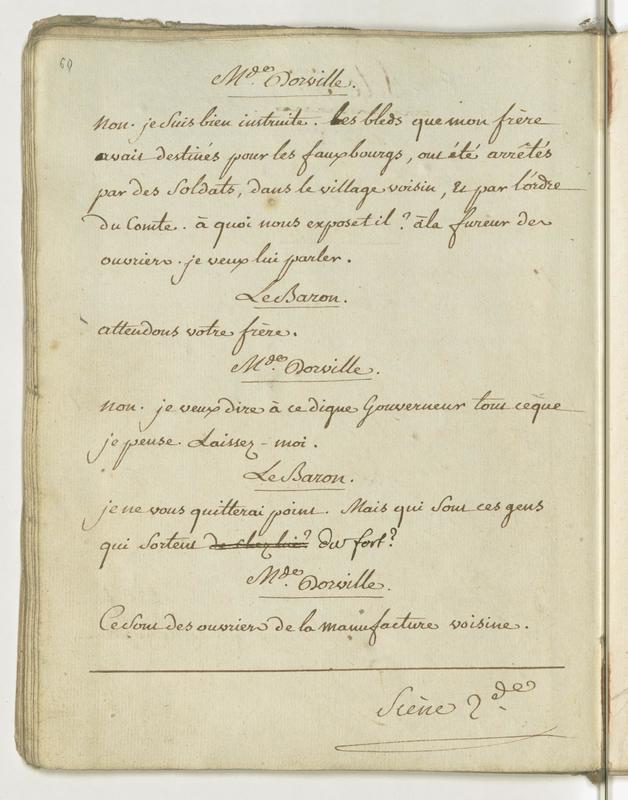 60
M.de Dorville.
Non. je suis bien instruite. Les bleds que mon frère
avait destinés pour les fauxbourgs, ont été arrêtés
par des Soldats, dans le village voisin, Et par l'órdre
du Comte. à quoi nous expose t il? à la fureur des
ouvriers. je veux lui parler.
Le Baron.
attendons votre frère.
M.de Dorville.
Non. je veux dire à ce digne Gouverneur tout ceque
je pense. Laissez-moi.
Le Baron.
je ne vous quitterai point. Mais qui sont ces gens
qui sortent de chez lui? du fort?
M.de Dorville.
Ce sont des ouvriers de la manufacture voisine.
Scène 2.de